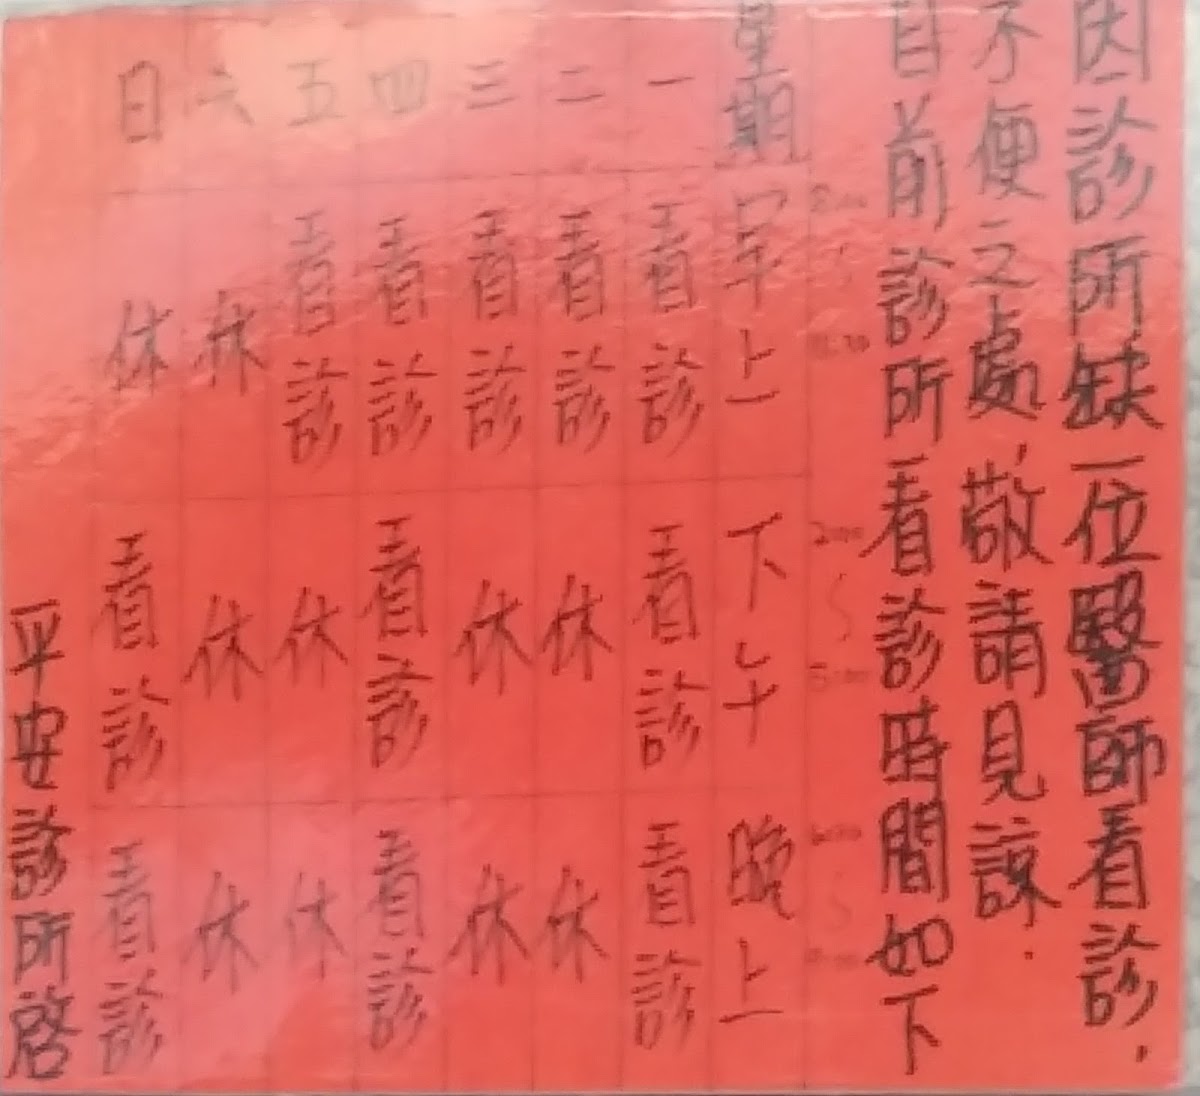 因診所缺一位醫師看診，
不便之處，敬請見諒．
目前診所看診時間如下
2:00
星期 早上 下午 晚上
一 看診 看診 看診
二 看診 休 休
三 看診 休 休
四 看診 看診 看診
五 看診 休 休
六 休 休 休
日 休 看診 看診
平安診所啓